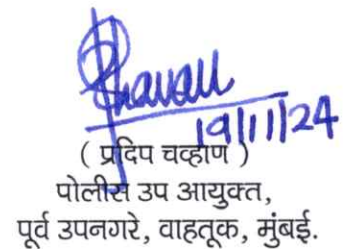 Chavan
19/11/24
( प्रदिप चव्हाण )
पोलीस उप आयुक्त,
पूर्व उपनगरे, वाहतूक, मुंबई.